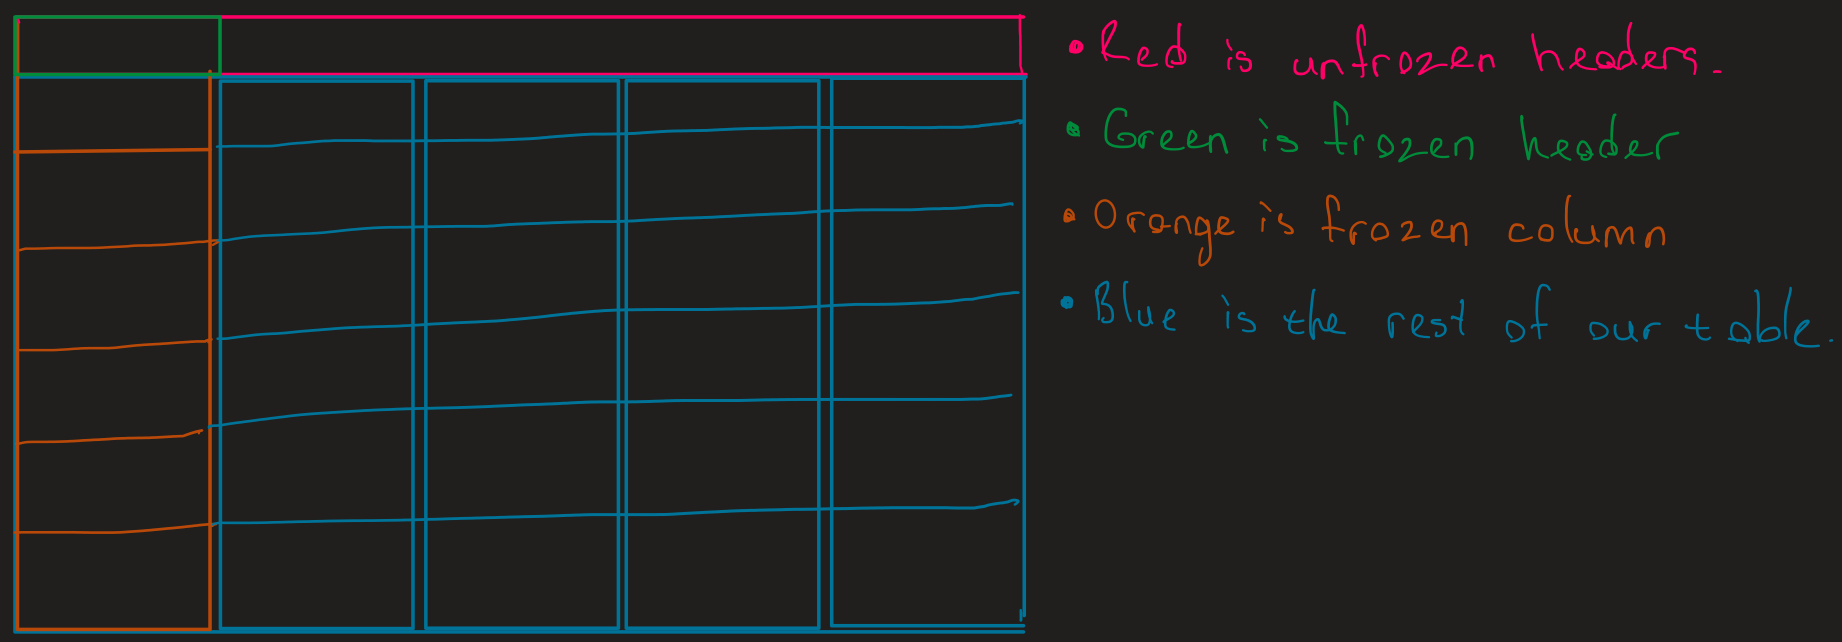 • Red is unfrozen headers.
• Green is frozen header
• Orange is frozen column
• Blue is the rest of our table.